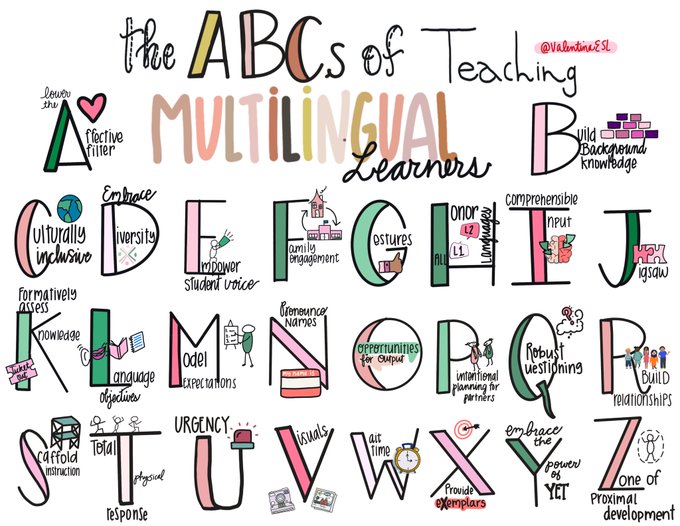 the ABCs of Teaching
@ValentinaESL
MULTILINGUAL
Learners
lower the
Affective
filter
Build
Background
Knowledge
Culturally
inclusive
Embrace
Diversity
Empower
student voice
Family
engagement
Gestures
Honor
All
Languages
L1
L2
Comprehensible
Input
Jigsaw
Formatively
assess
Knowledge
ticket
out
Language
objectives
Model
EXPECTATIONS
Pronounce
NAMES
N
MY NAME IS
Opportunities
for output
Pintentional
planning for
partners
Robust
Questioning
RBuild
relationships
Scaffold
instruction
Total
physical
response
URGENCY
U
Visuals
Wait
time
X
Provide
eXemplars
embrace
the
Y
power
of
YET
Zone of
Proximal
development